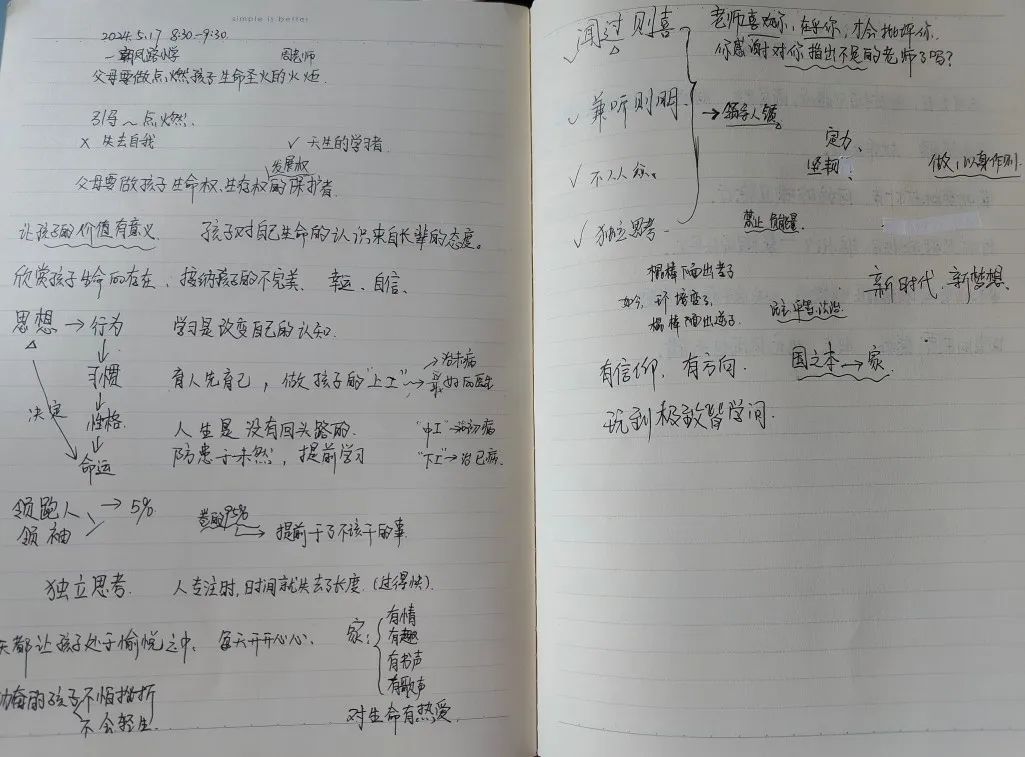 simple is better
2024.5.17 8:30-9:30.
朝凤路小学 周老师
父母要做点燃孩子生命圣火的火炬.
引导~点燃.
× 失去自我 ✓ 天生的学习者
发展权
父母要做孩子生命权、生存权的保护者.
让孩子的价值有意义. 孩子对自己生命的认识来自长辈的态度。
欣赏孩子生命的存在、接纳孩子的不完美、幸运、自信、
思想 → 行为 学习是改变自己的认知.
→治未病
习惯 育人先育己, 做孩子的"上工" → 最好的医生
性格. 人生是没有回头路的. "中工"→治初病
决定
防患于未然, 提前学习 "下工"→治已病.
命运
领跑人 → 5%
领袖
卷的95% → 提前干了不该干的事
独立思考. 人专注时,时间就失去了长度.(过得快).
天都让孩子处于愉悦之中, 每天开开心心、
家: 有情
有趣
有书声
有歌声
勤奋的孩子 不怕挫折
不会轻生.
对生命有热爱.
✓ 闻过则喜 老师喜欢你,在乎你,才会批评你.
你感谢对你指出不足的老师了吗?
✓ 兼听则明. → 领导人物
定力、
坚韧、 做,以身作则.
✓ 不从众.
✓ 独立思考 禁止负能量.
棍棒下面出孝子
如今,环境变了, 民主平等,法治.
棍棒下面出逆子.
新时代,新梦想.
有信仰,有方向. 国之本→家.
玩到极致皆学问.